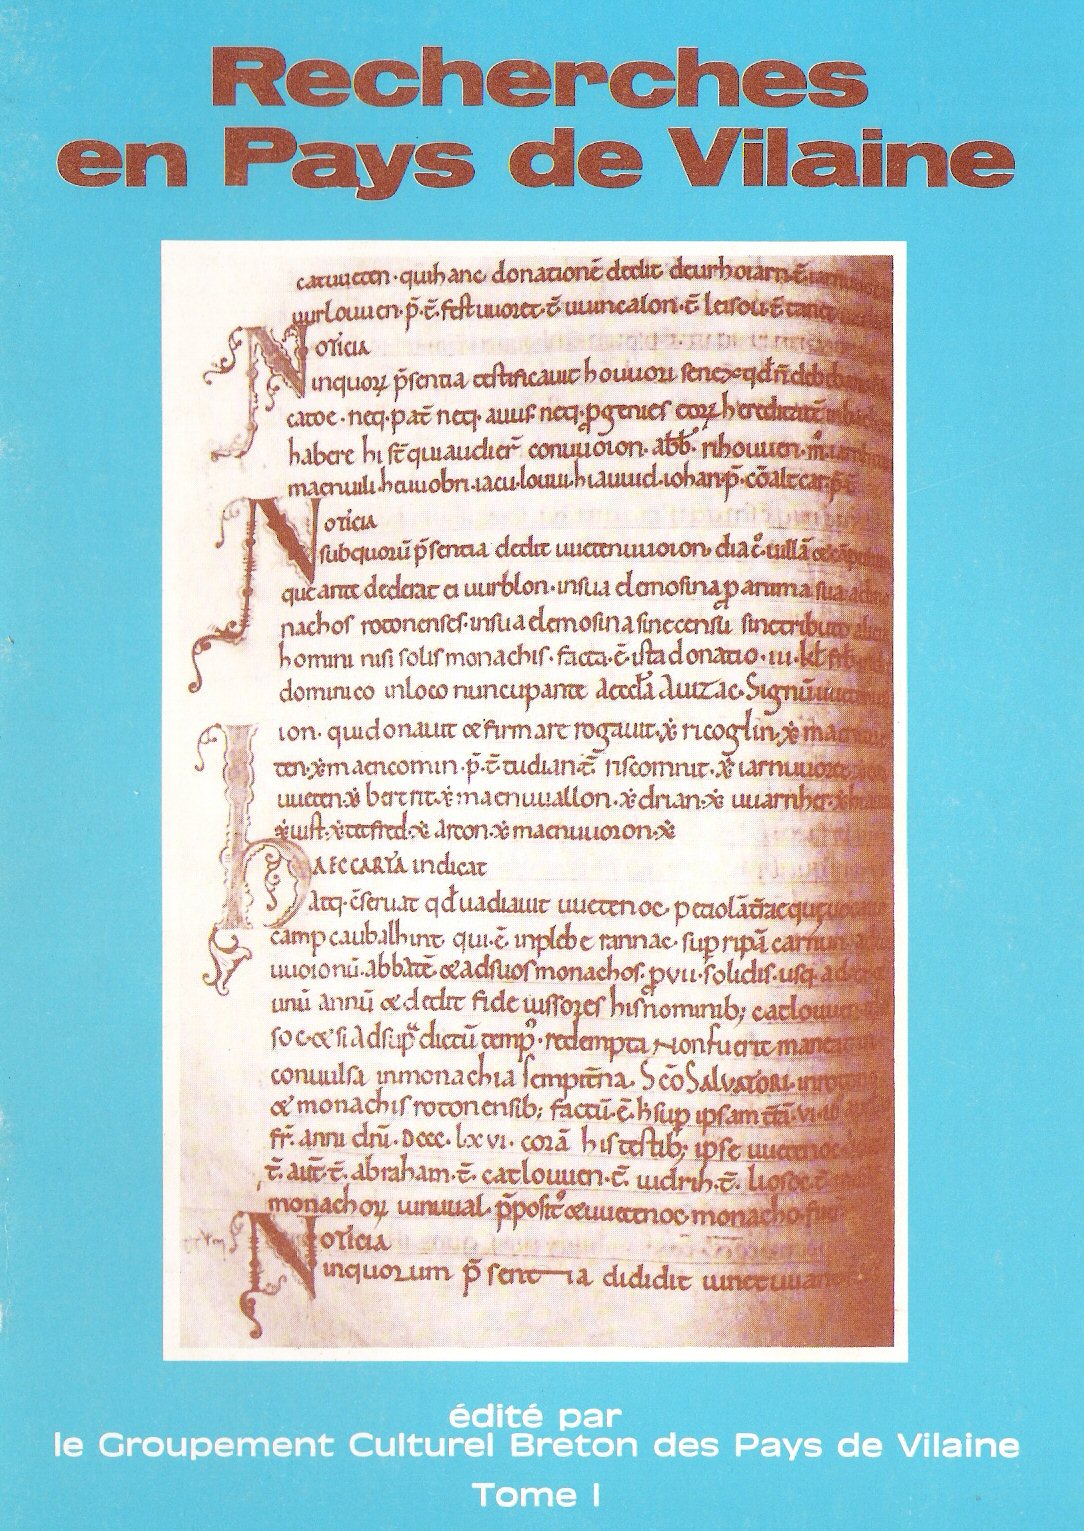 Recherches
en Pays de Vilaine
catuueten · quihanc donationē dedit deurhoiarn · t̄
uurlouuen · p̄ · t̄ · festuuoret · t̄ uuincalon · t̄ leisou · t̄ tanet
Noticia
inquoꝝ p̄sentia testificauit houuori senex qđ n̄ debeba
catoc · neq · pat̄ neq · auus neq · ꝓgenies eoꝝ hereditatē
habere hi st̄ qui audier̄ conuuoion · abb · rihouuen · m
maenuili · heuuobri · iacu · louui · hiauuid · iohan · p̄ · cōaltcar · p̄
Noticia
subquorū p̄sentia dedit uuetenuuoion · diac̄ · uillā
que ante dederat ei uurblon · insua elemosina ꝑ anima sua
nachos rotonenses · insua elemosina sinecensū sinetributo
homini nisi solis monachis · facta · ē · ista donatio · iii · kł
dominico inloco nuncupante aeccła auizac · Signū
ion · qui donauit & firmare rogauit · x̄ · ricoglin · x̄
ten · x̄ · maencomin · p̄ · t̄ · tudian · t̄ riscomnit · x̄ iarnuuoret
uueten · x̄ bertrit · x̄ · maenuuallon · x̄ · drian · x̄ uuarnher · x̄
x̄ iust · x̄ · x̄ arton · x̄ maenuuoron · x̄
HAEC CARTA indicat
atq · c̄seruat qđ uadiauit uuetenoc
camp caubalhint qui · ē · inplebe rannac · sup ripā
uuoionū · abbatē & adsuos monachos · ꝓ vii · solidis · usq ad
unū annū & dedit fideiussores hisnominib; catlouuen
soc · & si adsup dictū temp · redempta nonfuerit maneat
conuulsa inmonachia sempit̄na · Sc̄o SALVATORI · inroton
& monachis rotonensib; factū · ē · h sup ipsam · vi · id
fr̄ · anni dn̄i · Dccc · lxvi · corā his testib; ipse uuetenoc
t̄ · aut̄ · t̄ · abraham · t̄ · catlouuen · t̄ · uudrih · t̄ · liosoc · t̄
monachoꝝ uinuual · p̄posit & uuetenoc · monacho
Noticia
inquorum p̄sentia dididit
édité par
le Groupement Culturel Breton des Pays de Vilaine
Tome I